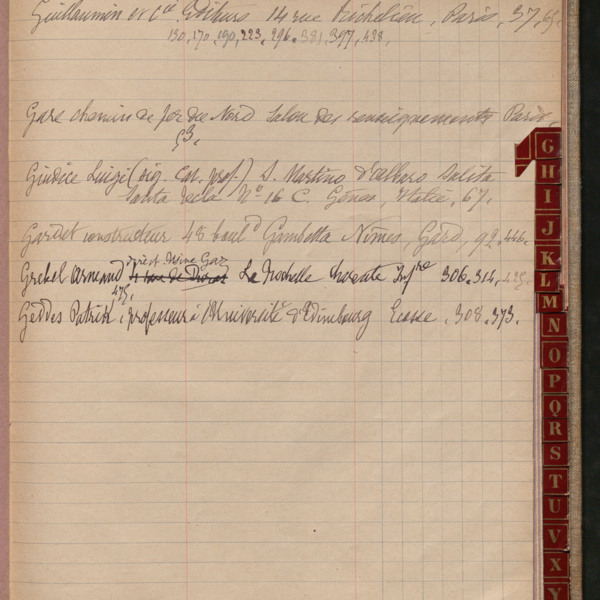 Guillaumin et Cie Editeurs 14 rue Richelieu, Paris, 37, 65,
130, 170, 190, 223, 296, 381, 397, 438,
Gare chemin de fer du Nord Salon des renseignements Paris,
53.
Giudice Luigi (Sig. Cav. prof.) S. Martino d'Albaro Salita
Santa Tecla No 16 C. Gênes, Italie, 67.
Gardet constructeur 48 bould Gambetta Nîmes, Gard, 92, 446.
Usine Gaz
Grekel Armand La Rochelle Charente Infre 306, 314, 425,
475,
Geddes Patrik, professeur à l'Université d'Edimbourg Ecosse, 308, 373.
G
H
I
J
K
L
M
N
O
P
Q
R
S
T
U
V
X
Y